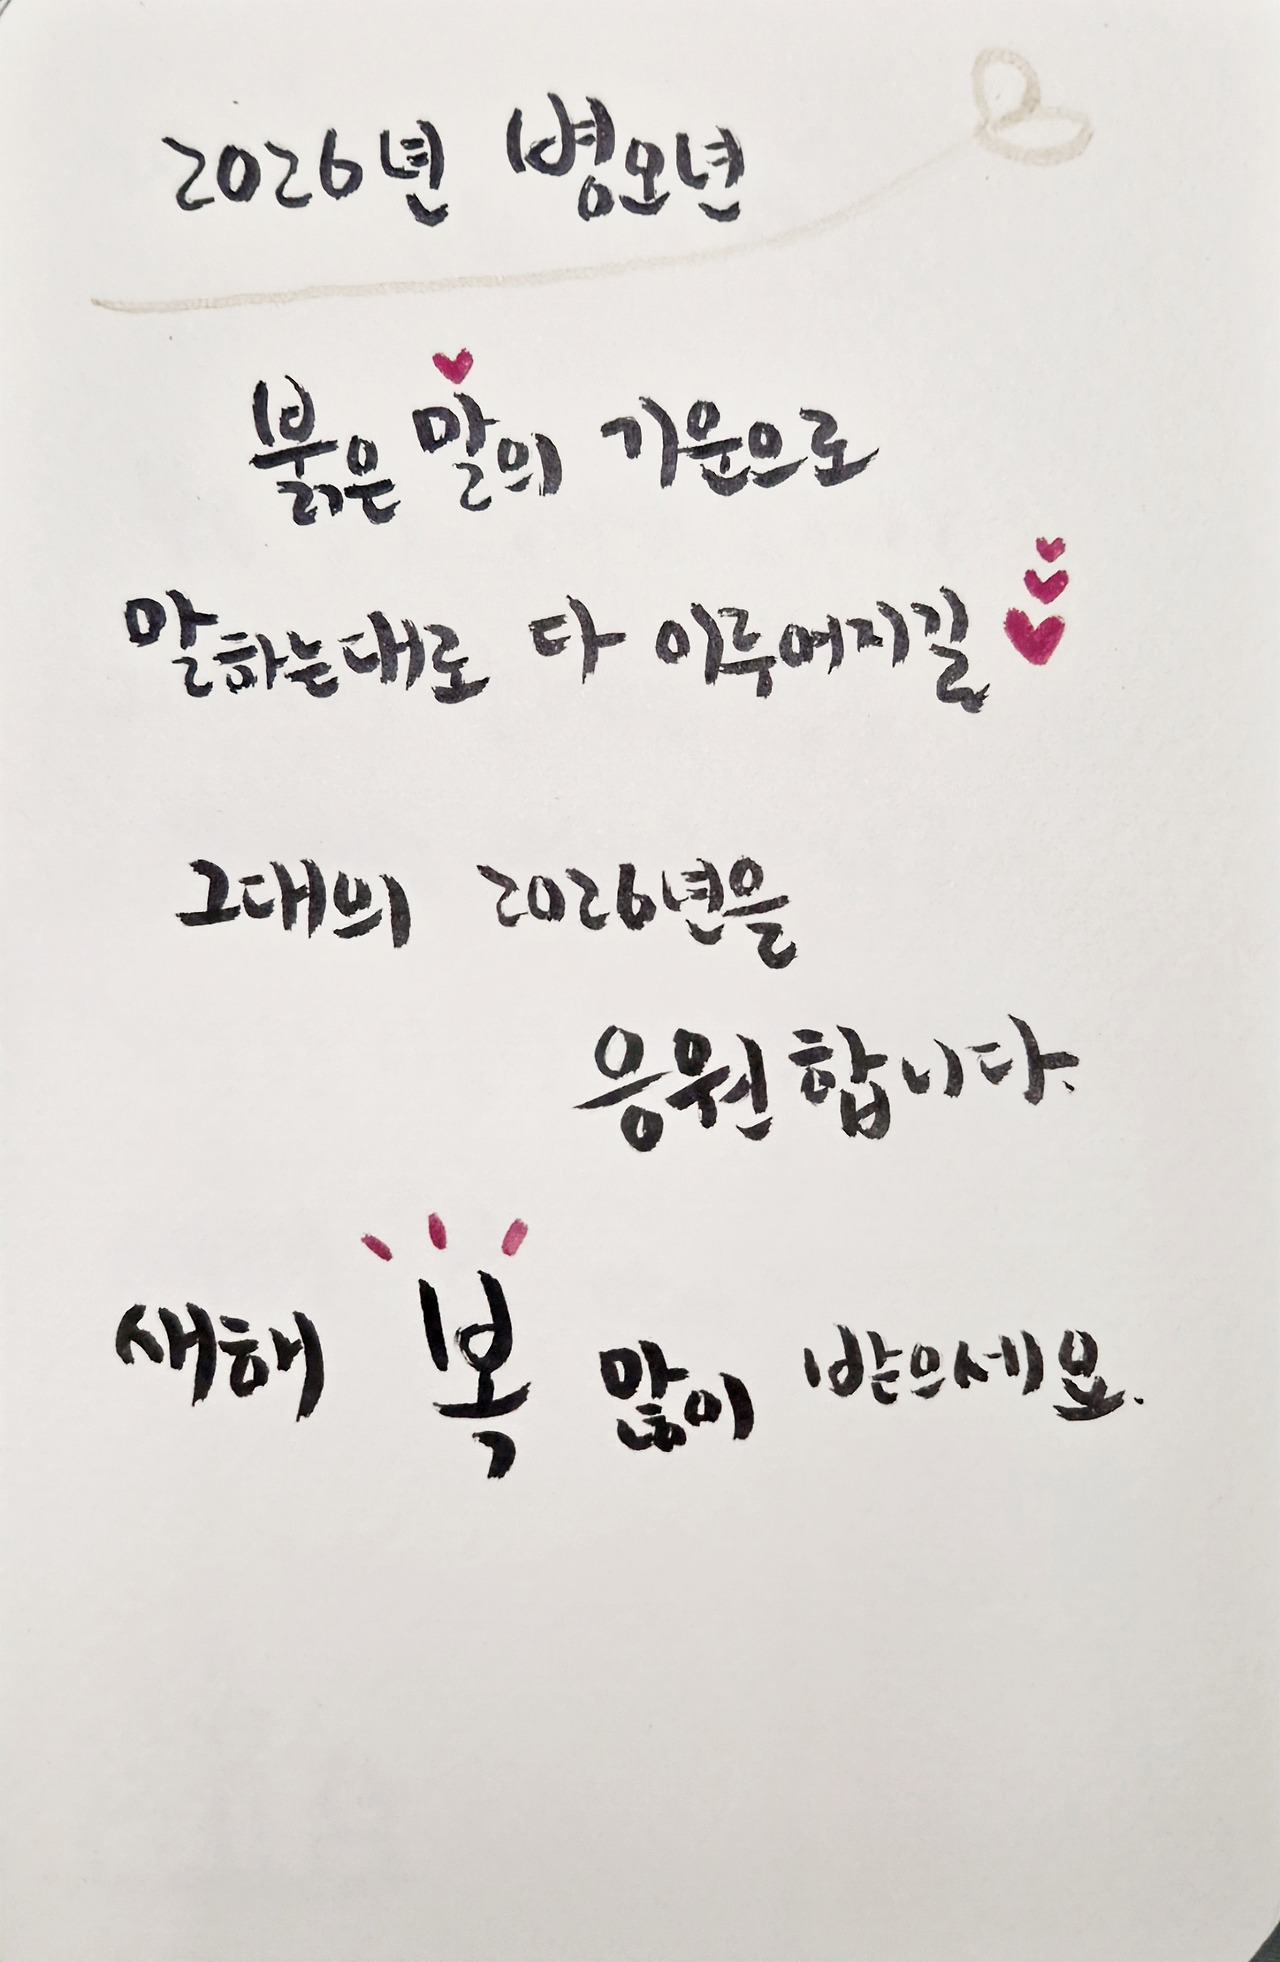 2026년 병오년
붉은 말의 기운으로
말하는대로 다 이루어지길
그대의 2026년을
응원합니다.
새해 복 많이 받으세요.